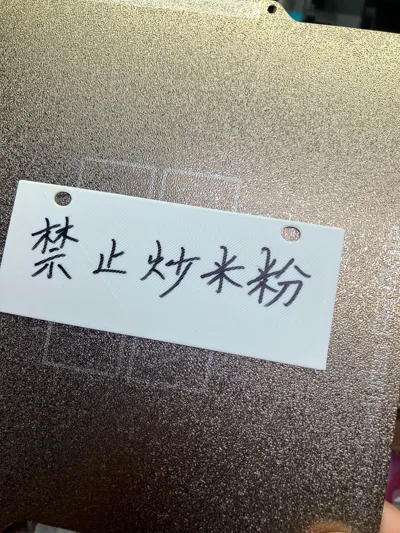 禁止炒米粉